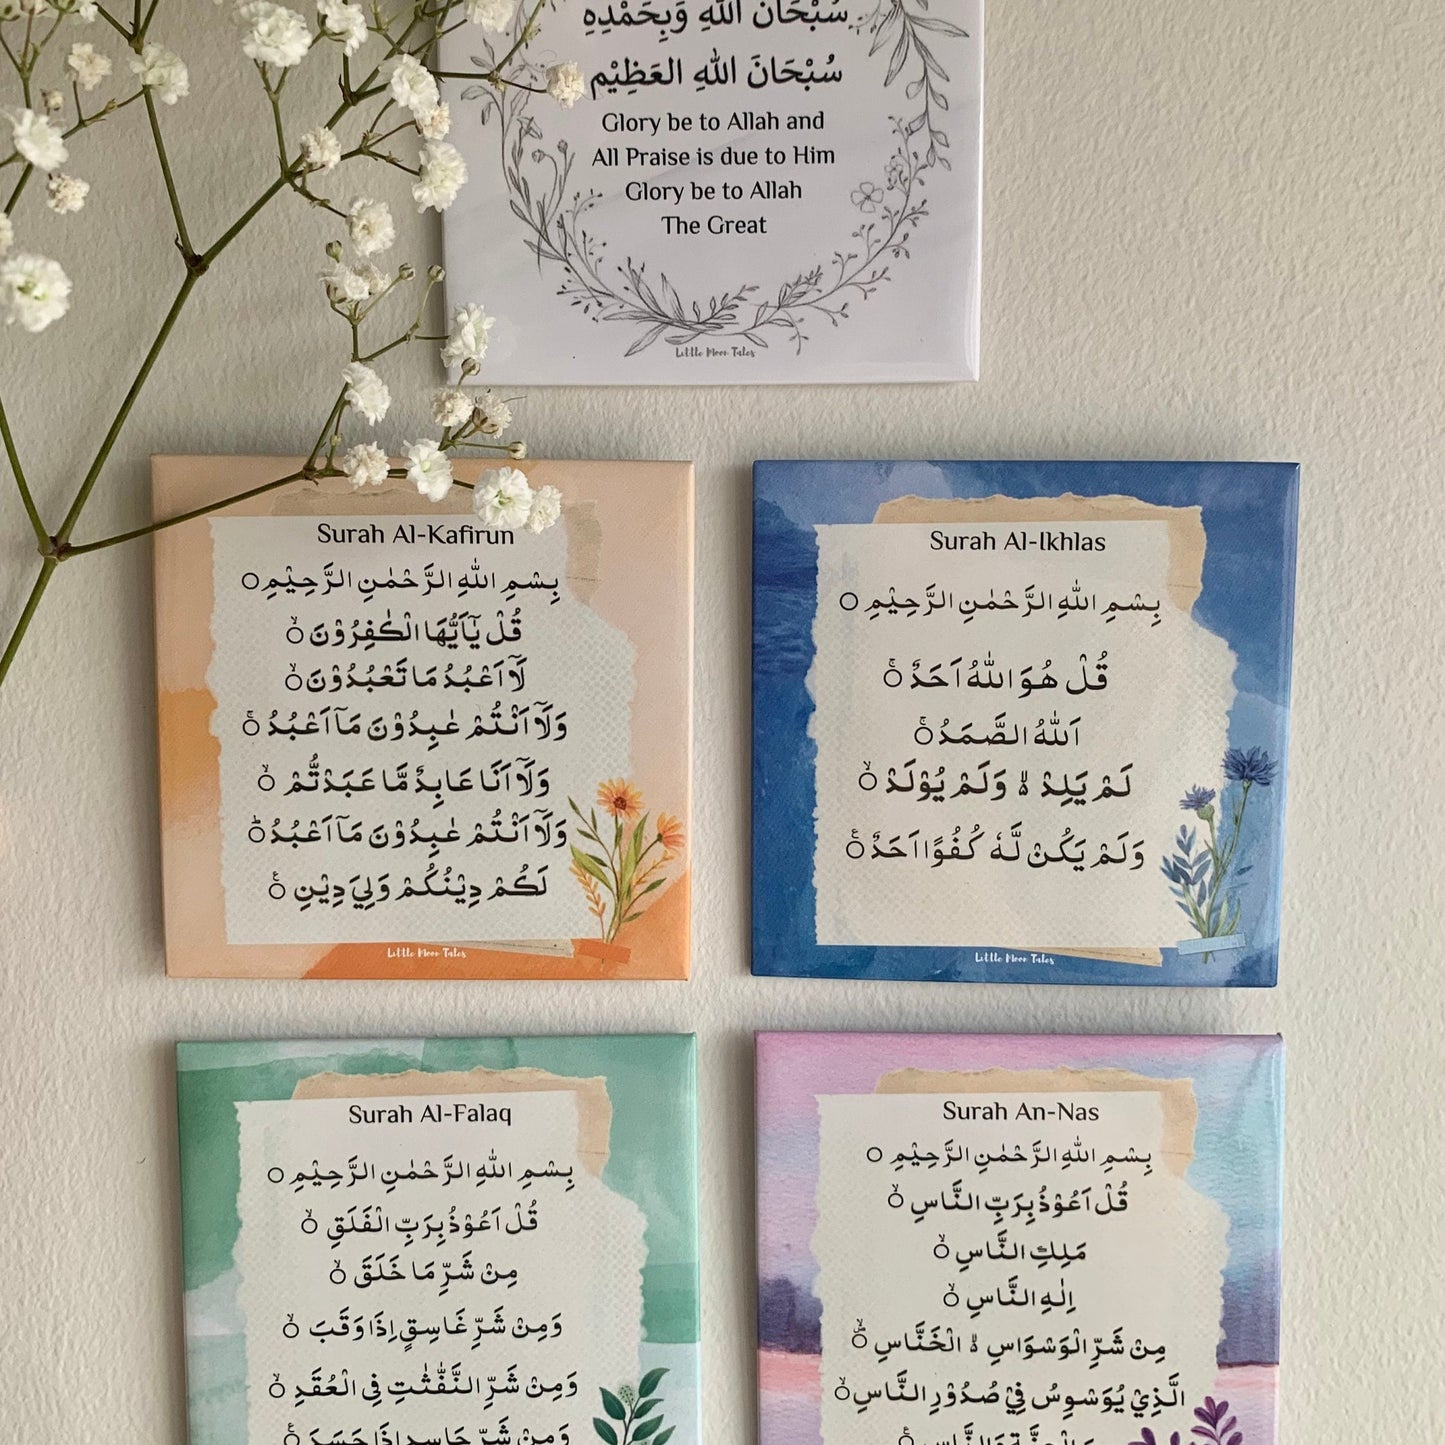 سُبْحَانَ اللّٰهِ وَبِحَمْدِهِ
سُبْحَانَ اللّٰهِ العَظِيْمِ
Glory be to Allah and
All Praise is due to Him
Glory be to Allah
The Great
Little Moon Tales
Surah Al-Kafirun
بِسْمِ اللّٰهِ الرَّحْمٰنِ الرَّحِيْمِ ○
قُلْ يٰٓاَيُّهَا الْكٰفِرُوْنَ ۙ○
لَآ اَعْبُدُ مَا تَعْبُدُوْنَ ۙ○
وَلَآ اَنْتُمْ عٰبِدُوْنَ مَآ اَعْبُدُ ۚ○
وَلَآ اَنَا عَابِدٌ مَّا عَبَدْتُّمْ ۙ○
وَلَآ اَنْتُمْ عٰبِدُوْنَ مَآ اَعْبُدُ ۗ○
لَكُمْ دِيْنُكُمْ وَلِيَ دِيْنِ ۚ○
Little Moon Tales
Surah Al-Ikhlas
بِسْمِ اللّٰهِ الرَّحْمٰنِ الرَّحِيْمِ ○
قُلْ هُوَ اللّٰهُ اَحَدٌ ۚ○
اَللّٰهُ الصَّمَدُ ۚ○
لَمْ يَلِدْ ۙ وَلَمْ يُوْلَدْ ۙ○
وَلَمْ يَكُنْ لَّهٗ كُفُوًا اَحَدٌ ۚ○
Little Moon Tales
Surah Al-Falaq
بِسْمِ اللّٰهِ الرَّحْمٰنِ الرَّحِيْمِ ○
قُلْ اَعُوْذُ بِرَبِّ الْفَلَقِ ۙ○
مِنْ شَرِّ مَا خَلَقَ ۙ○
وَمِنْ شَرِّ غَاسِقٍ اِذَا وَقَبَ ۙ○
وَمِنْ شَرِّ النَّفّٰثٰتِ فِى الْعُقَدِ ۙ○
وَمِنْ شَرِّ حَاسِدٍ اِذَا حَسَدَ ۚ○
Surah An-Nas
بِسْمِ اللّٰهِ الرَّحْمٰنِ الرَّحِيْمِ ○
قُلْ اَعُوْذُ بِرَبِّ النَّاسِ ۙ○
مَلِكِ النَّاسِ ۙ○
اِلٰهِ النَّاسِ ۙ○
مِنْ شَرِّ الْوَسْوَاسِ ۙ الْخَنَّاسِ ۙ○
الَّذِيْ يُوَسْوِسُ فِيْ صُدُوْرِ النَّاسِ ۙ○